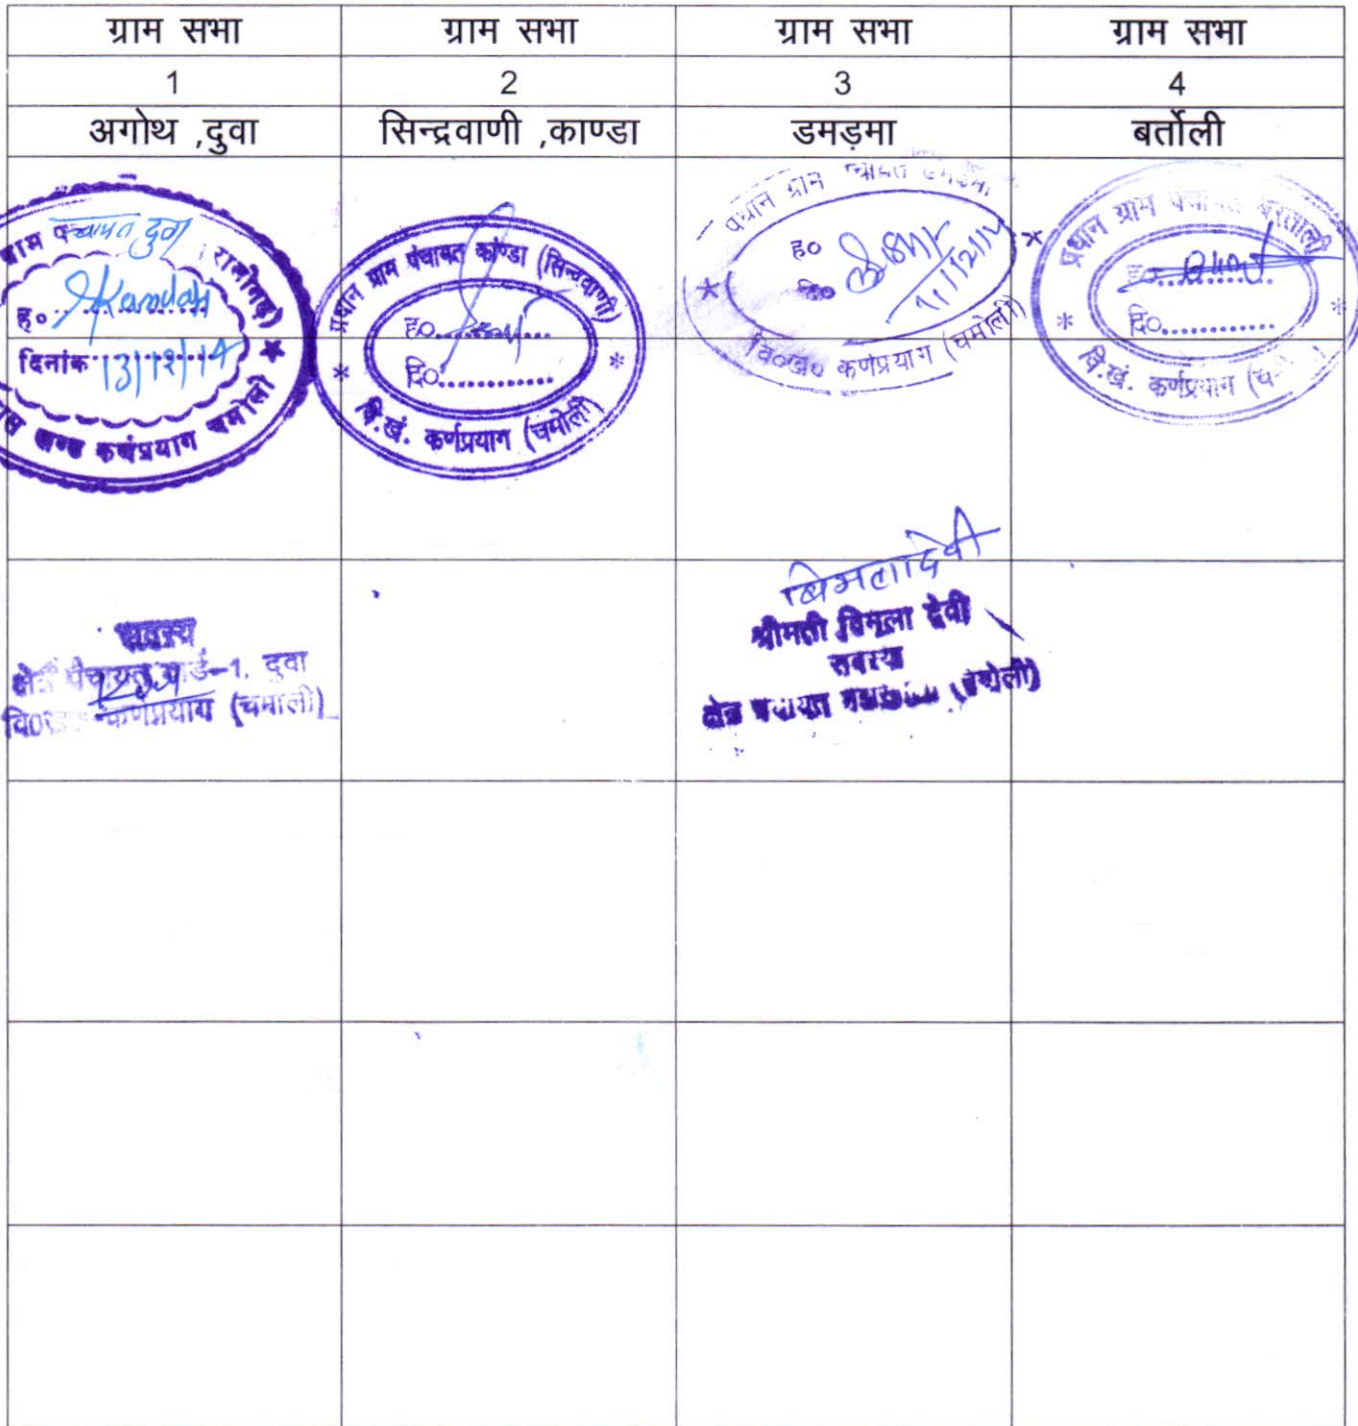 ग्राम सभा ग्राम सभा ग्राम सभा ग्राम सभा
1 2 3 4
अगोथ ,दुवा सिन्द्रवाणी ,काण्डा डमड़मा बर्तोली
ग्राम पंचायत दुवा
ह०
दिनांक 13/12/14
खण्ड कर्णप्रयाग चमोली
प्रधान ग्राम पंचायत काण्डा (सिन्द्रवाणी)
ह०
दि०
वि.खं. कर्णप्रयाग (चमोली)
प्रधान ग्राम पंचायत डमडमा
ह०
वि०ख० कर्णप्रयाग (चमोली)
प्रधान ग्राम पंचायत बरतोली
ह०
दि०
वि.खं. कर्णप्रयाग
सदस्य
क्षेत्र पंचायत वार्ड-1, दुवा
कर्णप्रयाग (चमोली)
बिमलादेवी
श्रीमती विमला देवी
सदस्य
क्षेत्र पंचायत (चमोली)